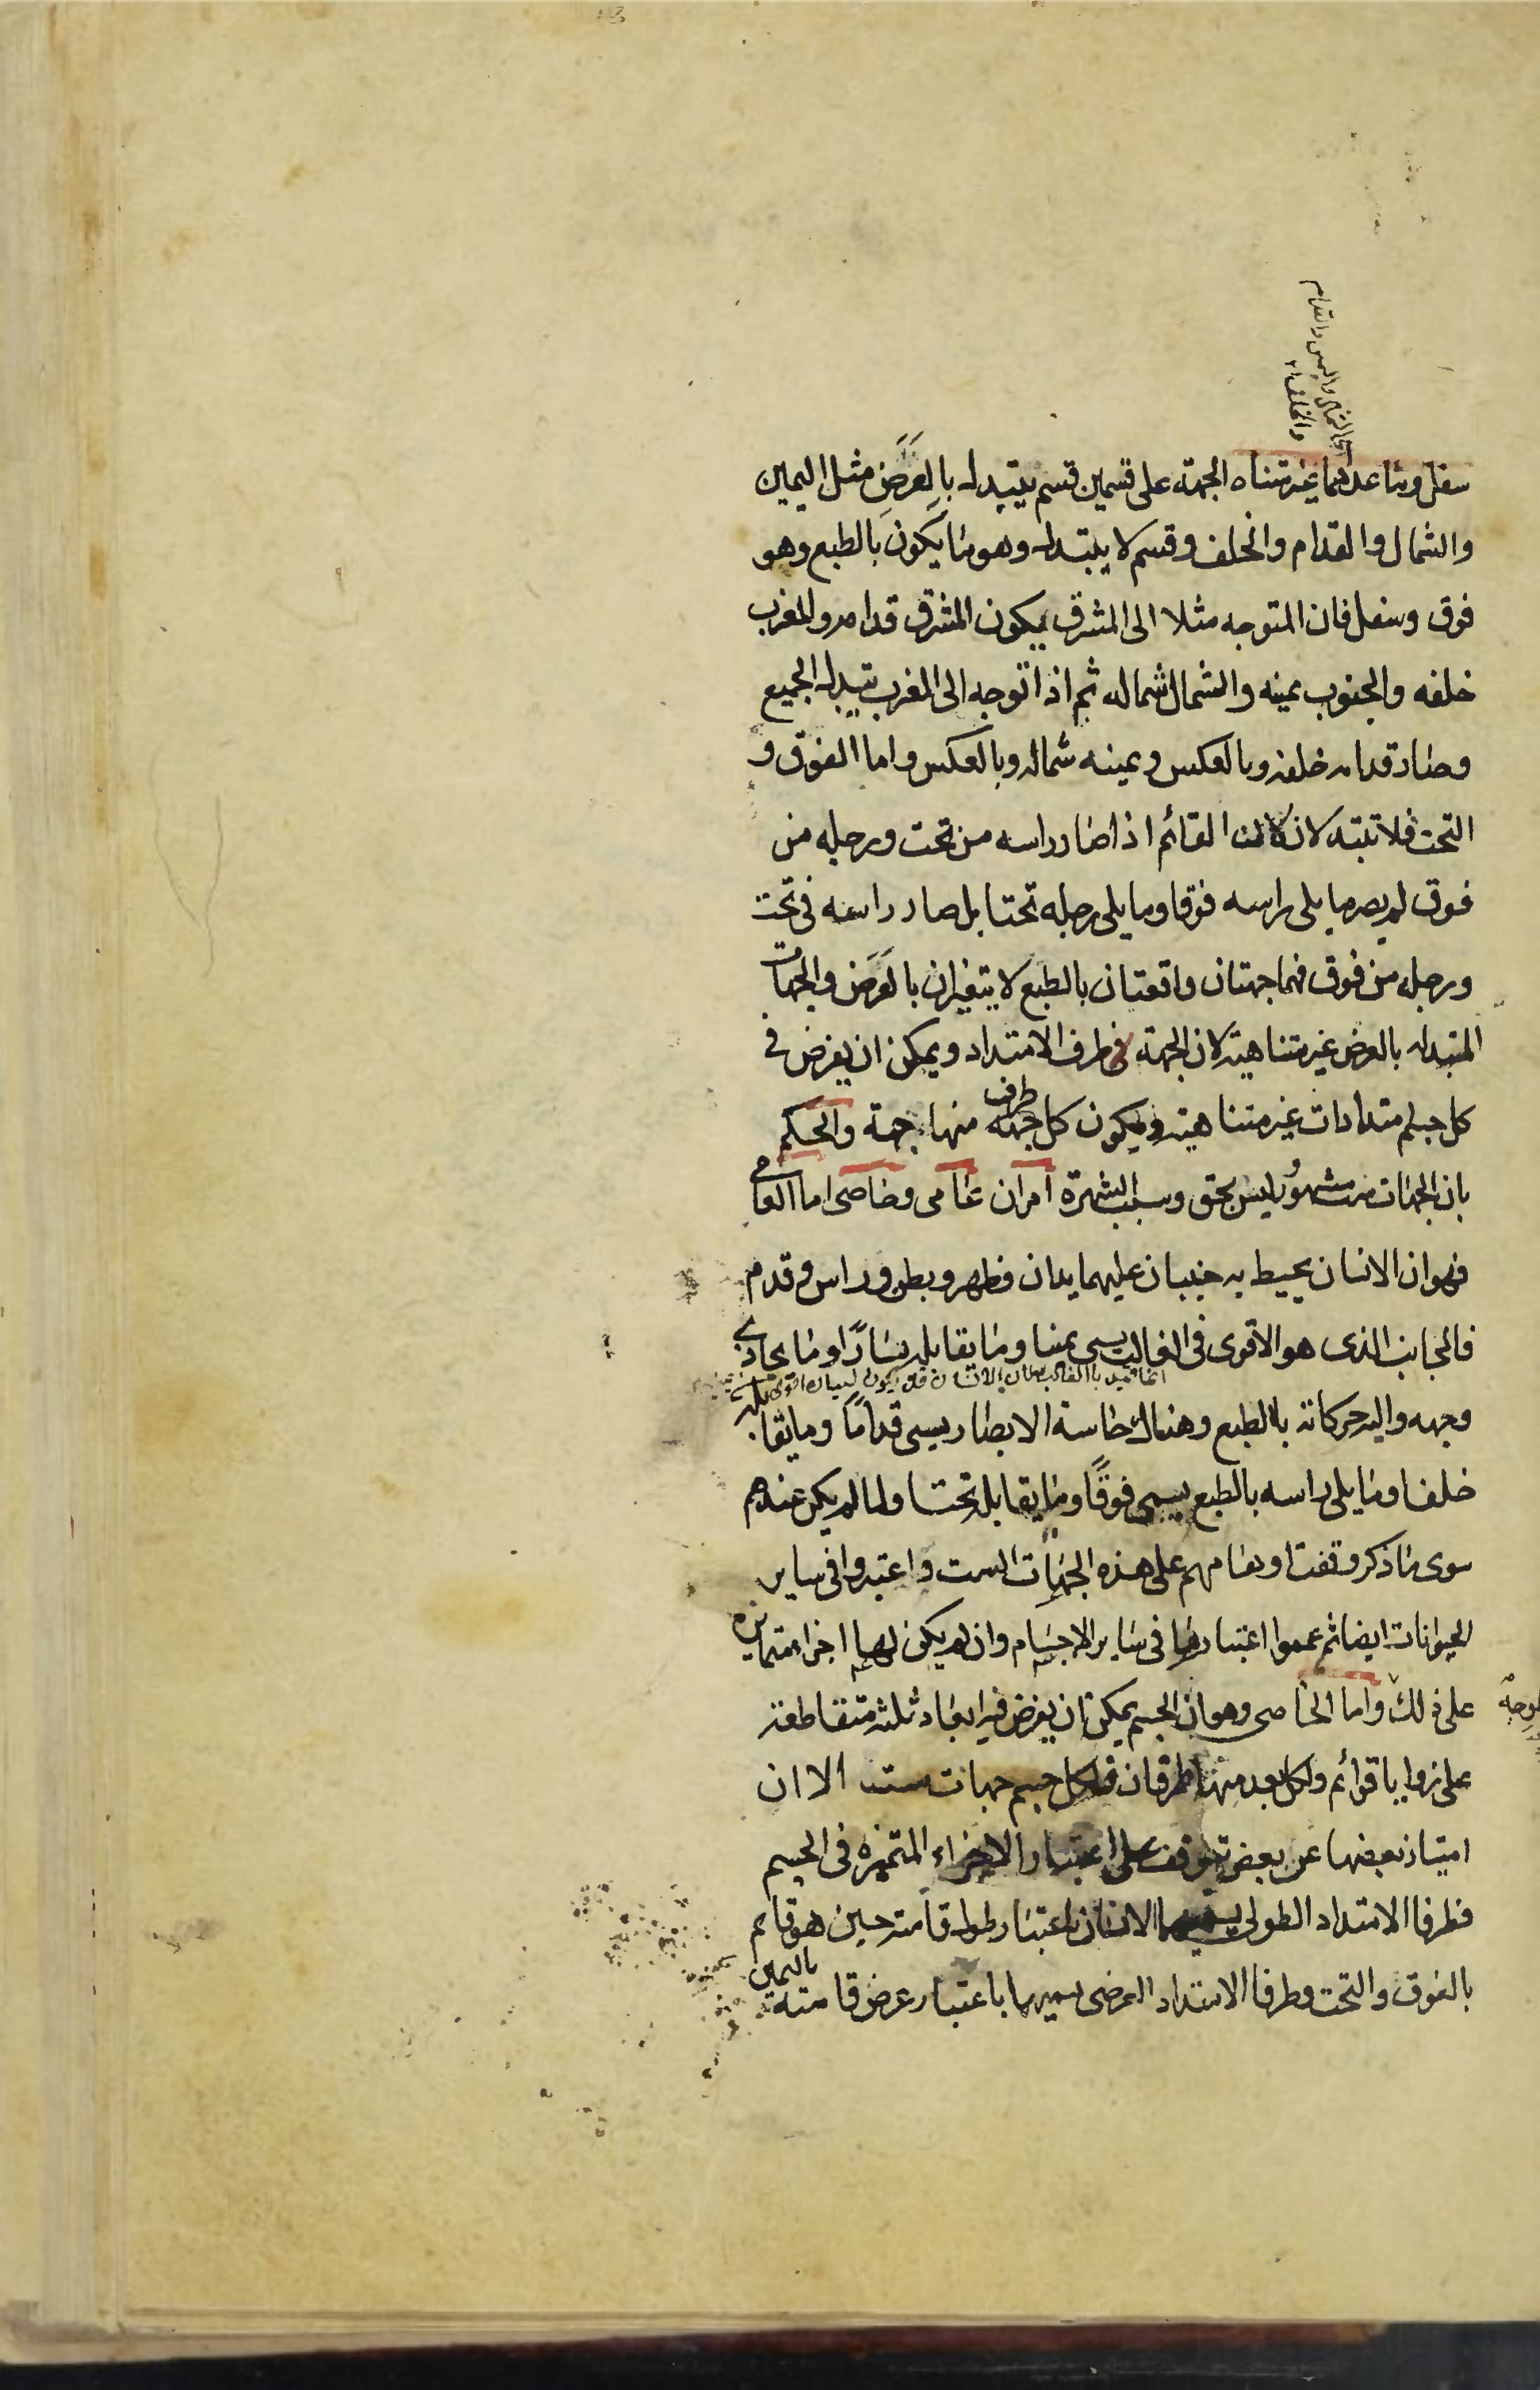 اي الشمال واليمين والقدام
والخلف ١٢
سفل وماعداهما غير متناه الجهة على قسمين قسم يتبدل بالعَرَضِ مثل اليمين
والشمال والقدام والخلف وقسم لا يتبدل وهو ما يكون بالطبع وهو
فوق وسفل فان المتوجه مثلا الى المشرق يكون المشرق قدامه والمغرب
خلفه والجنوب يمينه والشمال شماله ثم اذا توجه الى المغرب يتبدل الجميع
وصار قدامه خلفه وبالعكس ويمينه شماله وبالعكس واما الفوق و
التحت فلا تتبدلان لان القائم اذا صار راسه من تحت ورجله من
فوق لم يصر ما يلى راسه فوقا وما يلى رجله تحتا بل صار راسه فى تحت
ورجله من فوق فهما جهتان واقعتان بالطبع لا يتغيران بالعَرَض والجهات
المتبدله بالعرض غير متناهية لان الجهة طرف الامتداد ويمكن ان يفرض فى
كل جسم امتدادات غير متناهية ويكون كل طرف منها جهة والحكم
بان الجهات ست مشهور ليس بحق وسبب الشهرة امران عامى وخاصى اما العامى
فهو ان الانسان يحيط به جنبان عليهما يدان وظهر وبطن وراس وقدم
فالجانب الذى هو الاقوى فى الغالب يسمى يمينا وما يقابله يسارًا وما يحاذى
انما قيد بالغالب لان الانسان قد يكون يساره اقوى
وجهه واليه حركاته بالطبع وهناك حاسة الابصار يسمى قدامًا وما يقابله
خلفا وما يلى راسه بالطبع يسمى فوقًا وما يقابله تحتا ولما لم يكن عندهم
سوى ما ذكر وقفت اوهامهم على هذه الجهات الست واعتبروا فى ساير
الحيوانات ايضا ثم عمموا اعتبارها فى ساير الاجسام وان لم يكن لها اجزاء متمايزة
على ذلك واما الخاصى وهو ان الجسم يمكن ان يفرض فيه ابعاد ثلثه متقاطعة
على زوايا قوائم ولكل بعد منها طرفان فلكل جسم جهات ست الا ان
امتياز بعضها عن بعض يتوقف على اعتبار الاجزاء المتميزه فى الجسم
فطرفا الامتداد الطولى يسميهما الانسان باعتبار طول قامته حين هو قائم
بالفوق والتحت وطرفا الامتداد العرضى يسميهما باعتبار عرض قامته باليمين